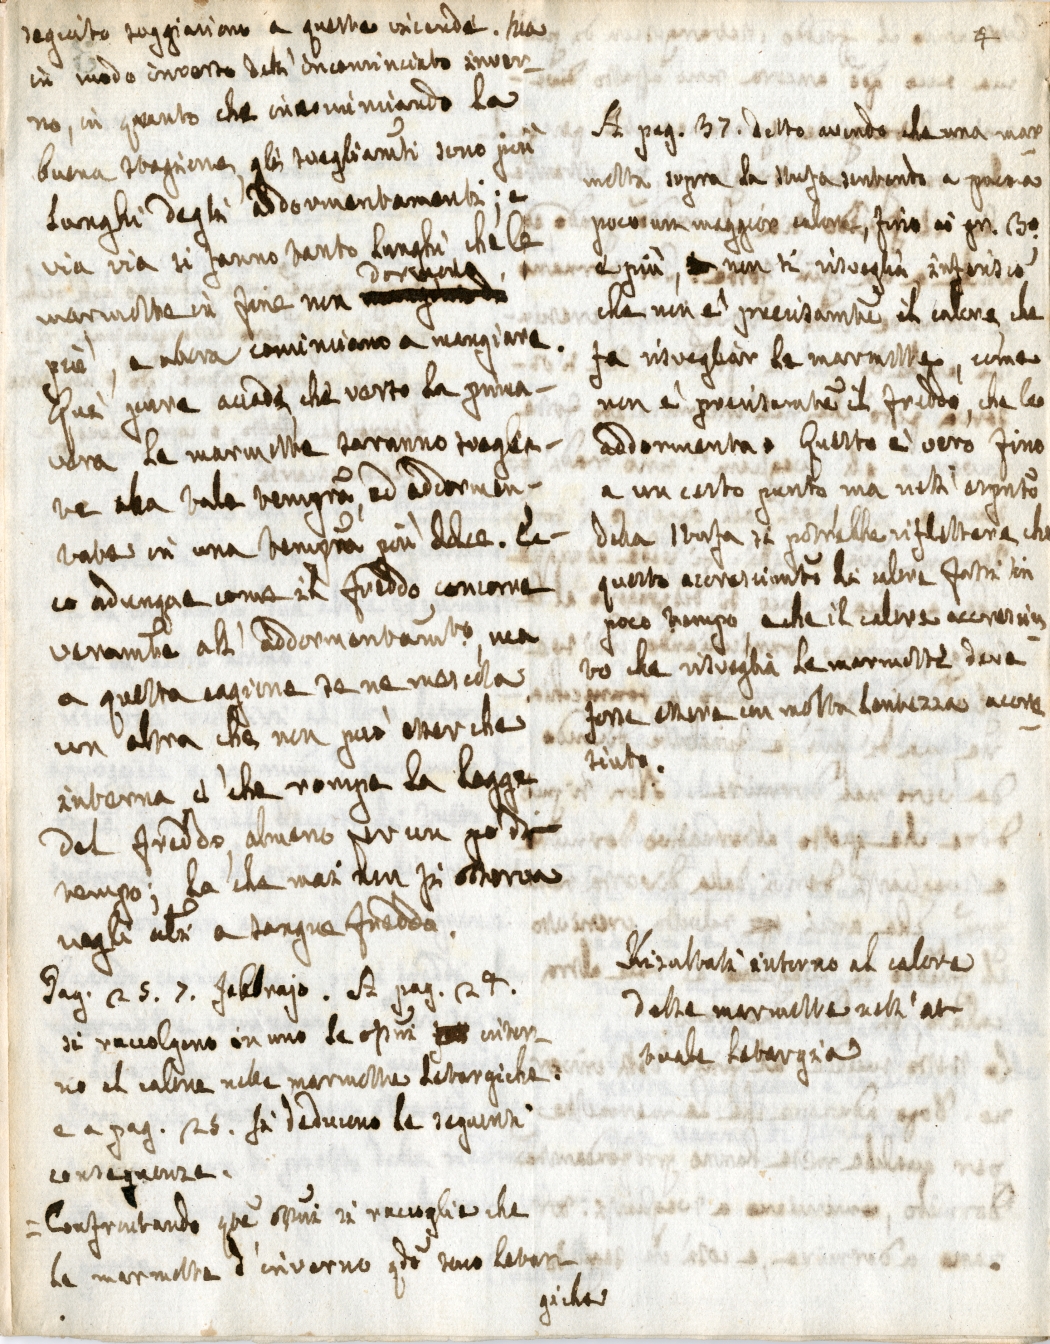 seguito soggiaciono a queste vicende. Ma
in modo inverso dell'incominciato inver-
no, in quanto che incominciando la
buona stagione, gli svegliamti sono più
lunghi degli addormentamenti; e
via via si fanno tanto lunghi che le
marmotte in fine non dormono
più, e allora cominciano a mangiare.
Quasi pure accade, che verso la prima-
vera le marmotte saranno sveglia-
te alla tale temprã, ed addormen-
tate in una temprã più dolce. Ec-
co adunque come il freddo concorre
veramte all'addormentamto, ma
a questa cagione se ne mescola
un'altra che non può esser che
interna e che rompe la legge
del freddo almeno per un po' di
tempo; la che mai non si osserva
negli altri a sangue freddo.
Pag. 25. 7. Febbrajo. A pag. 24.
si raccolgono in uno le osprñi intor-
no al calore nelle marmotte letargiche:
e a pag. 25. si deducono le seguenti
conseguenze.
= Confrontando qste osprñi si raccoglie che
le marmotte d'inverno qdo sono letar-
giche
4
A pag. 37. detto avendo che una mar-
motta sopra la stufa sentendo a poco a
poco un maggior calore, fino ai gr. 30
e più, non si risveglia, inferisco
che non è precisamte il calore che
fa risvegliar le marmotte, come
non è precisamte il freddo, che le
addormenta. Questo è vero fino
a un certo punto ma nell'esprmto
della stufa si potrebbe riflettere, che
questo accrescimto di calore fassi in
poco tempo, e che il calore accresciu-
to che risveglia le marmotte deve
forse essere con molta lentezza accre-
sciuto.
Risultati intorno al calore
delle marmotte nell'at-
tuale letargia